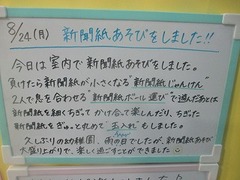 8/24(月) 新聞紙あそびをしました!!
今日は室内で新聞紙あそびをしました。
負けたら新聞紙が小さくなる"新聞紙じゃんけん"
2人で息を合わせる"新聞紙ボール運び"で遊んだあとは
新聞紙を細くちぎってかけ合して楽しんだり、ちぎった
新聞紙をぎゅっと丸めて"玉入れ"もしました。
久しぶりの幼稚園、雨の日でしたが、新聞紙あそびで
大盛り上がりで、楽しく過ごすことができました